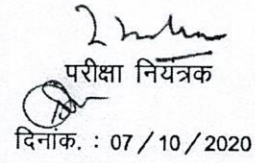 परीक्षा नियंत्रक
दिनांक. : 07 / 10 / 2020